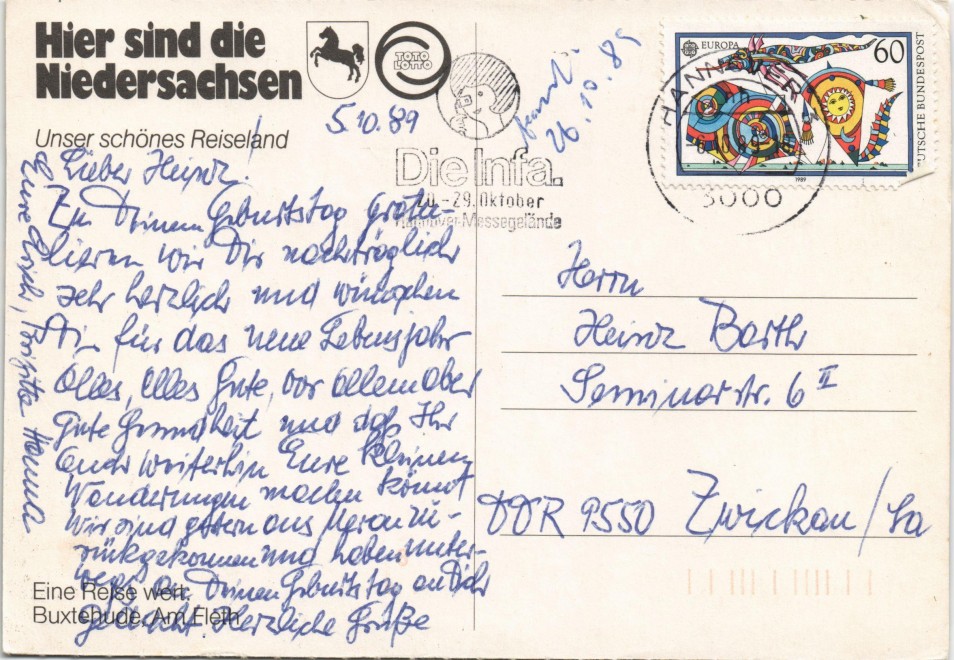 Hier sind die
Niedersachsen
TOTO
LOTTO
Unser schönes Reiseland
5.10.89
26.10.89
Die Infa.
20.-29. Oktober
Hannover-Messegelände
EUROPA
60
DEUTSCHE BUNDESPOST
1989
HANNOVER
3000
Lieber Heinz!
Zu Deinem Geburtstag gratu-
lieren wir Dir nachträglich
sehr herzlich und wünschen
Dir für das neue Lebensjahr
alles, alles Gute, vor allem aber
gute Gesundheit und daß Ihr
auch weiterhin Eure kleinen
Wanderungen machen könnt
Wir sind gestern aus Meran zu-
rückgekommen und haben unter-
wegs an Deinen Geburtstag an Dich
gedacht. Herzliche Grüße
Eure Brigitte Hanna
Eine Reise wert:
Buxtehude, Am Fleth
Herrn
Heinz Barth
Seminarstr. 6 II
DDR 9550 Zwickau/Sa